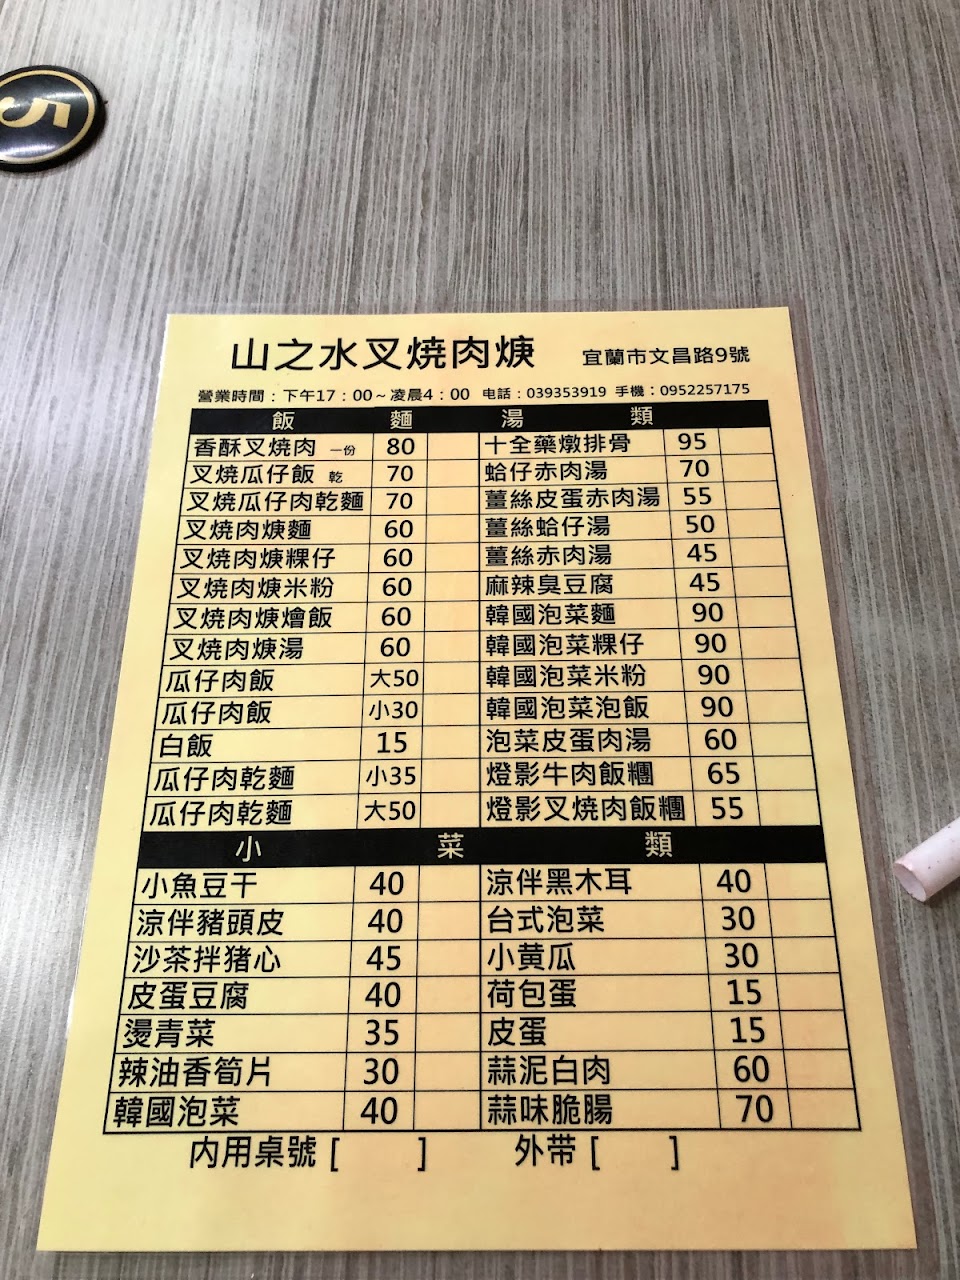 5
山之水叉燒肉焿 宜蘭市文昌路9號
營業時間：下午17：00～凌晨4：00 电話：039353919 手機：0952257175
飯 麵 湯 類
香酥叉燒肉 一份 80 十全藥燉排骨 95
叉燒瓜仔飯 乾 70 蛤仔赤肉湯 70
叉燒瓜仔肉乾麵 70 薑絲皮蛋赤肉湯 55
叉燒肉焿麵 60 薑絲蛤仔湯 50
叉燒肉焿粿仔 60 薑絲赤肉湯 45
叉燒肉焿米粉 60 麻辣臭豆腐 45
叉燒肉焿燴飯 60 韓國泡菜麵 90
叉燒肉焿湯 60 韓國泡菜粿仔 90
瓜仔肉飯 大50 韓國泡菜米粉 90
瓜仔肉飯 小30 韓國泡菜泡飯 90
白飯 15 泡菜皮蛋肉湯 60
瓜仔肉乾麵 小35 燈影牛肉飯糰 65
瓜仔肉乾麵 大50 燈影叉燒肉飯糰 55
小 菜 類
小魚豆干 40 涼伴黑木耳 40
涼伴豬頭皮 40 台式泡菜 30
沙茶拌猪心 45 小黄瓜 30
皮蛋豆腐 40 荷包蛋 15
燙青菜 35 皮蛋 15
辣油香筍片 30 蒜泥白肉 60
韓國泡菜 40 蒜味脆腸 70
内用桌號 [ ] 外带 [ ]